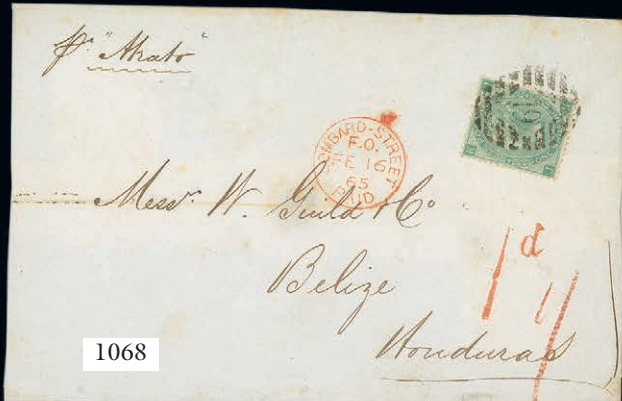 pr "Akato"
LOMBARD-STREET
F.O.
FE 16
65
PAID
19
Messrs W. Guild & Co
Belize
Honduras
1d
1068